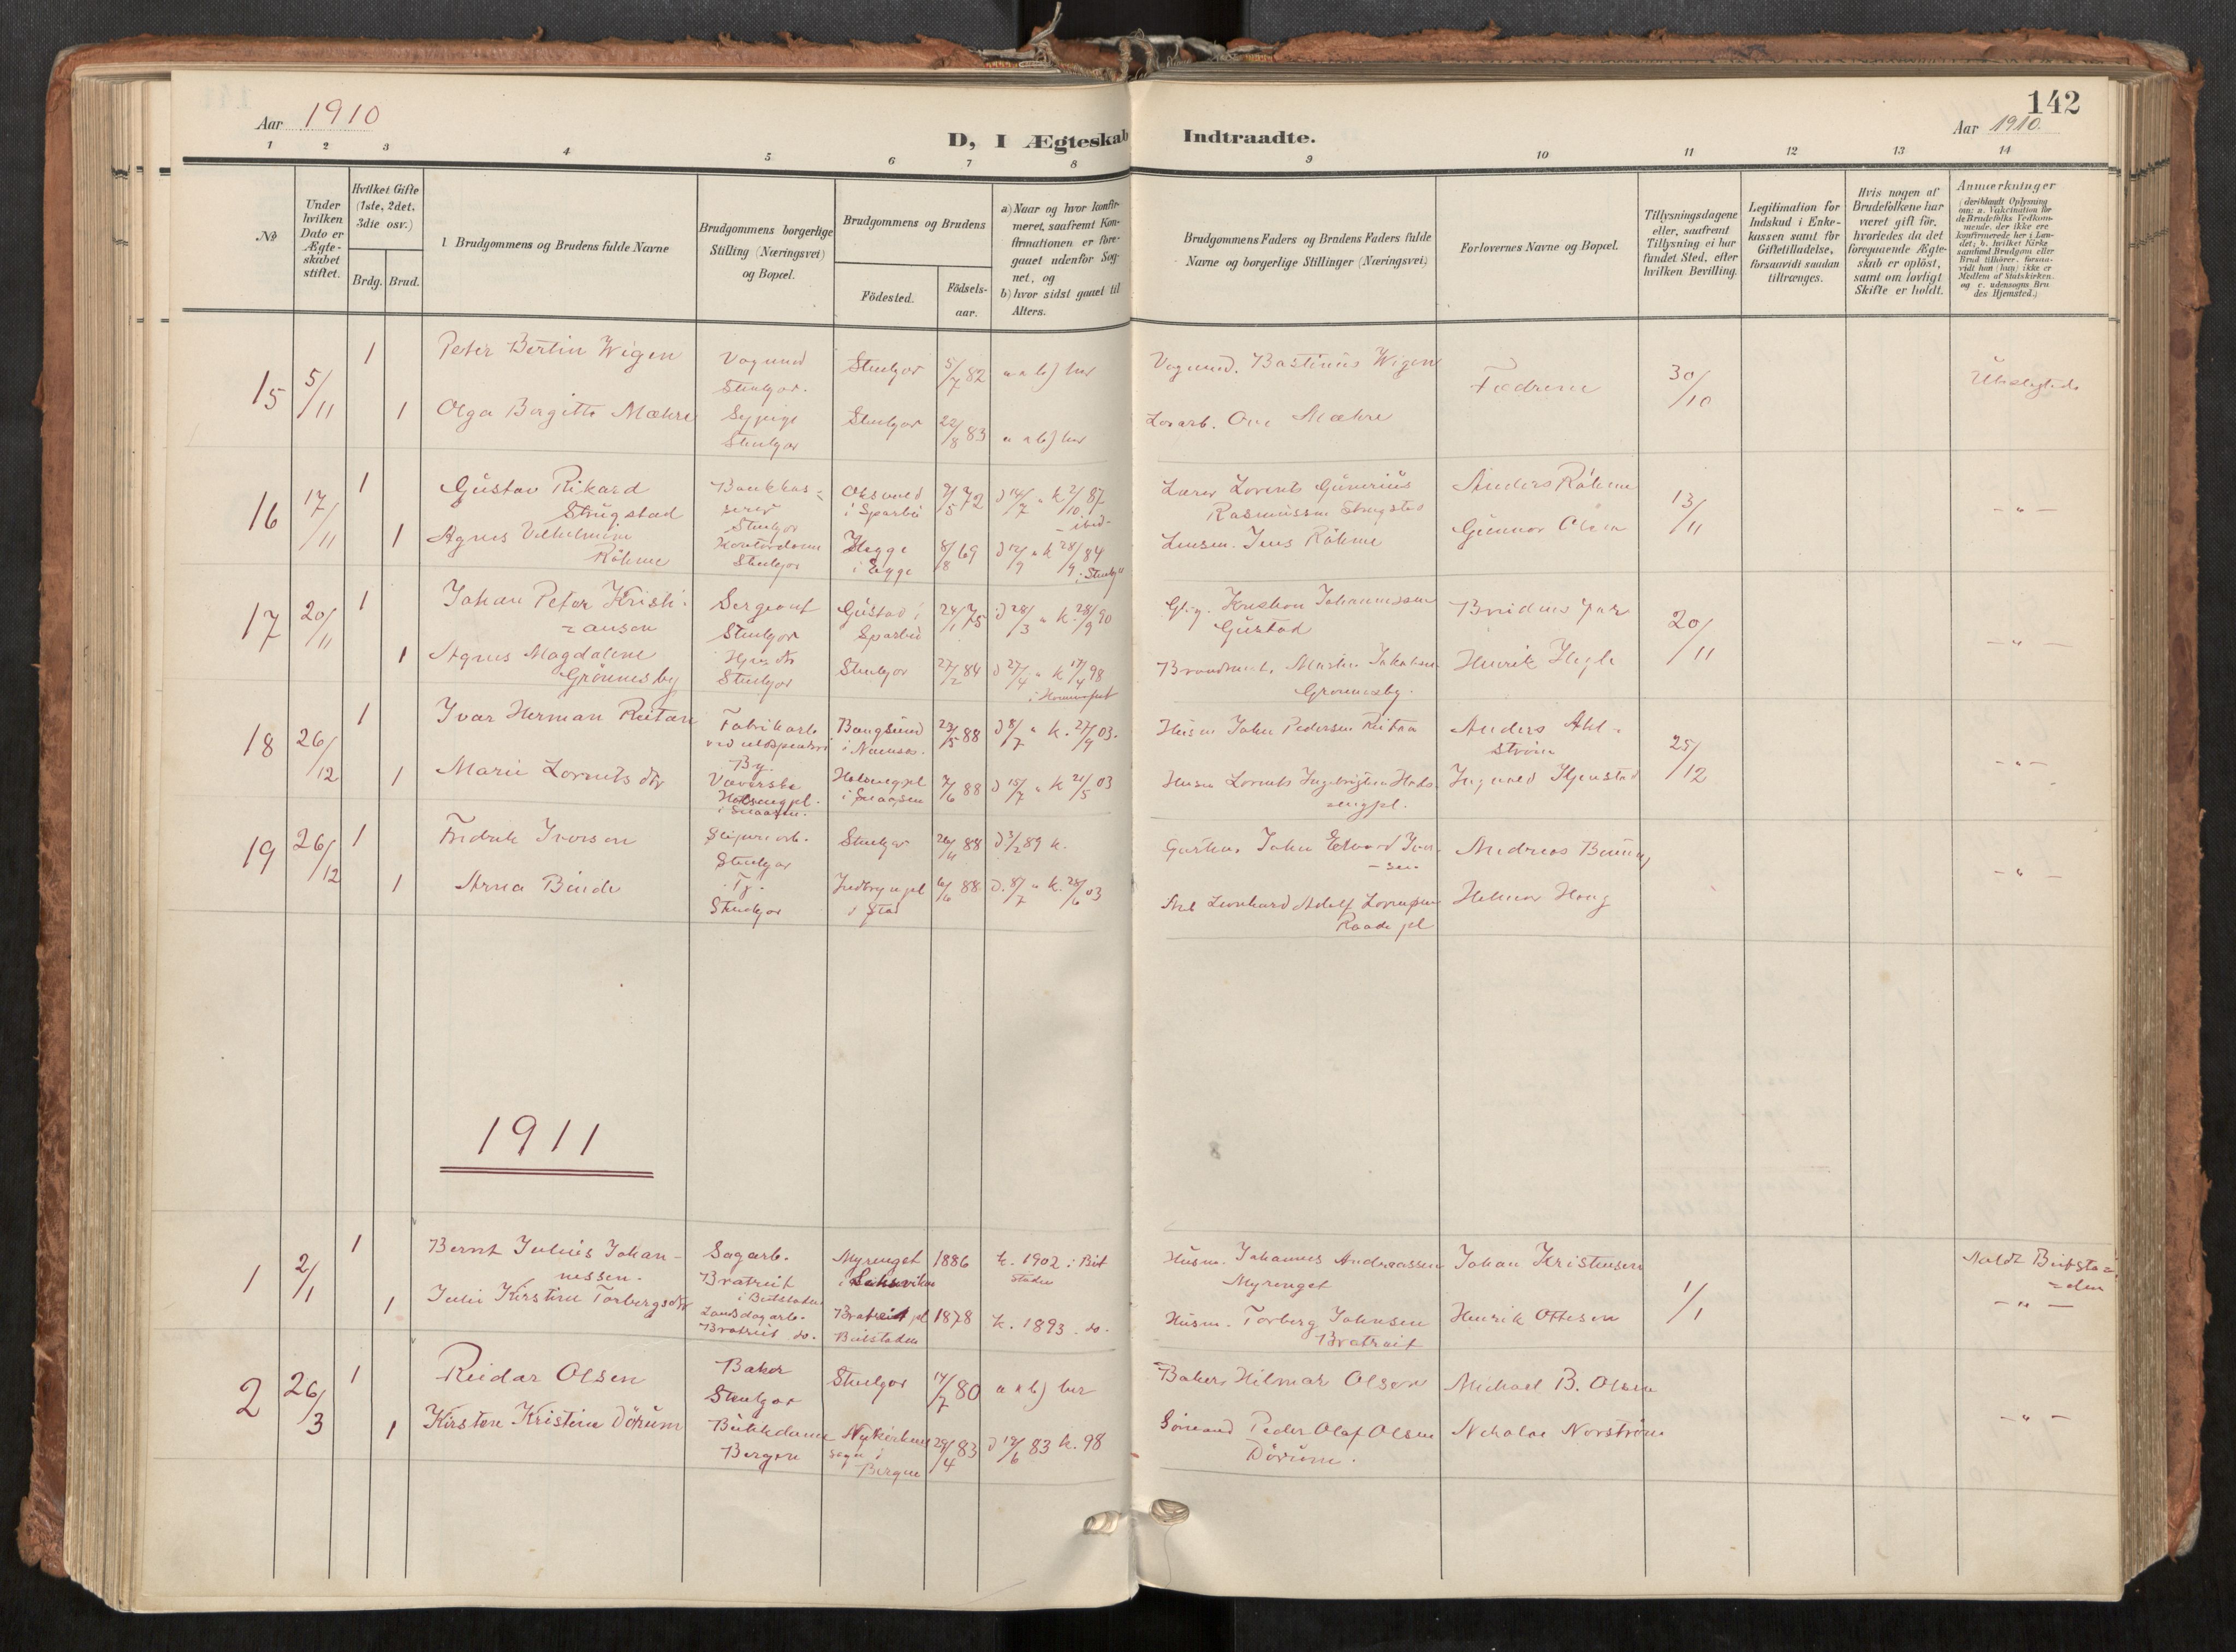 142
Aar 1910
Aar 1910.
D, I Ægteskab Indtraadte.
1 2 3 4 5 6 7 8 9 10 11 12 13 14
No
Under hvilken Dato er Ægteskabet stiftet.
Hvilket Gifte (1ste, 2det, 3die osv.)
Brdg. Brud.
1. Brudgommens og Brudens fulde Navne
Brudgommens borgerlige Stilling (Næringsvei) og Bopæl.
Brudgommens og Brudens
Födested.
Födsels-aar.
a) Naar og hvor konfirmeret, saafremt Konfirmationen er foregaaet udenfor Sognet, og
b) hvor sidst gaaet til Alters.
Brudgommens Faders og Brudens Faders fulde Navne og borgerlige Stillinger (Næringsvei)
Forlovernes Navne og Bopæl.
Tillysningsdagene eller, saafremt Tillysning ei har fundet Sted, efter hvilken Bevilling.
Legitimation for Indskud i Enkekassen samt for Giftetilladelse, forsaavidt saadan tiltrænges.
Hvis nogen af Brudefolkene har været gift för, hvorledes da det foregaaende Ægteskab er oplöst, samt om lovligt Skifte er holdt.
Anmærkninger
(deriblandt Oplysning om: a. Vakcination for de Brudefolks Vedkommende, der ikke ere konfirmerede her i Landet; b. hvilket Kirkesamfund Brudgom eller Brud tilhörer, forsaavidt han (hun) ikke er Medlem af Statskirken. og c. udensogns Brudes Hjemsted.)
15 5/11 1 Peter Bertin Wigen Vognmd Stenkjær. Stenkjær 5/7 82 a & b) her Vognmd. Bastinus Wigen Fædrene 30/10 Ubeslægtede
1 Olga Bergitte Mæhre Sypige Stenkjær Stenkjær 22/8 83 a & b) her Losarb. Ole Mæhre
16 17/11 1 Gustav Rikard Strugstad Bankkasserer Stenkjær Oksvold i Sparbu 9/5 72 d 14/7 " k 2/10 87 - ibid - Lærer Lorents Gunerius Rasmussen Strugstad Anders Röhme 13/11 - " -
1 Agnes Vilhelmine Röhme Kontordame Stenkjær Hegge i Egge 8/8 69 d 12/9 " k 28/9 84 i Stenkj" Lensm. Jens Röhme Gunnar Olsen
17 20/11 1 Johan Peter Kristi-ansen Sergeant Stenkjær Gustad i Sparbu 24/1 75 d 28/3 " k. 28/9 90 Kristian Johannessen Gustad Brudens far 20/11 - " -
1 Agnes Magdalene Grönnesby Stenkjær Stenkjær 27/2 84 d 27/4 " k 17/4 98 Martin Jakobsen Grønnesby. Henrik Hegle
18 26/12 1 Ivar Herman Reitan Fabrikarb. By. Bangsund i Namsos. 23/5 88 d 8/7 " k. 27/9 03. Husm John Pedersen Reitan Anders Ahlström 25/12 - " -
1 Marie Lorents dtr Væverske i Snaasen. i Snaasen 7/6 88 d 15/7 " k 21/5 03 Husm Lorents Ingvald
19 26/12 1 Fredrik Iversen Sliperiarb. Stenkjær Stenkjær 26/11 88 d 3/2 89 k. Gartner John Edvard Iversen Andreas - " -
1 Arna Binde Tj. Stenkjær i Stod 6/6 88 d. 8/7 " k. 28/6 03 Arb Leonhard Adolf Raade pl Helmer Haug
1911
1 2/1 1 Bernt Julius Johan-nessen. Sagarb. Bratreit i Beitstaden Myrenget i Leksviken 1886 k. 1902 i Beitstaden Husm. Johannes Andreassen Myrenget Johan Kristensen 1/1 Beitsta-den
1 Julie Kirstine Torbergsdtr Landsdagarb. Bratreit do. Bratreit pl Beitstaden 1878 k. 1893 do. Husm. Torberg Johnsen Bratreit Henrik Ottesen - " -
2 26/3 1 Reidar Olsen Baker Stenkjær Stenkjær 14/7 80 a & b) her Baker Hilmar Olsen Michael B. Olsen
1 Kirsten Kristine Dörum Butikdame Bergen Nykirkens sogn i Bergen 29/4 83 d 19/6 83 k. 98 Sömand Peder Olaf Olsen Dörum. Nikolai Norström - " -